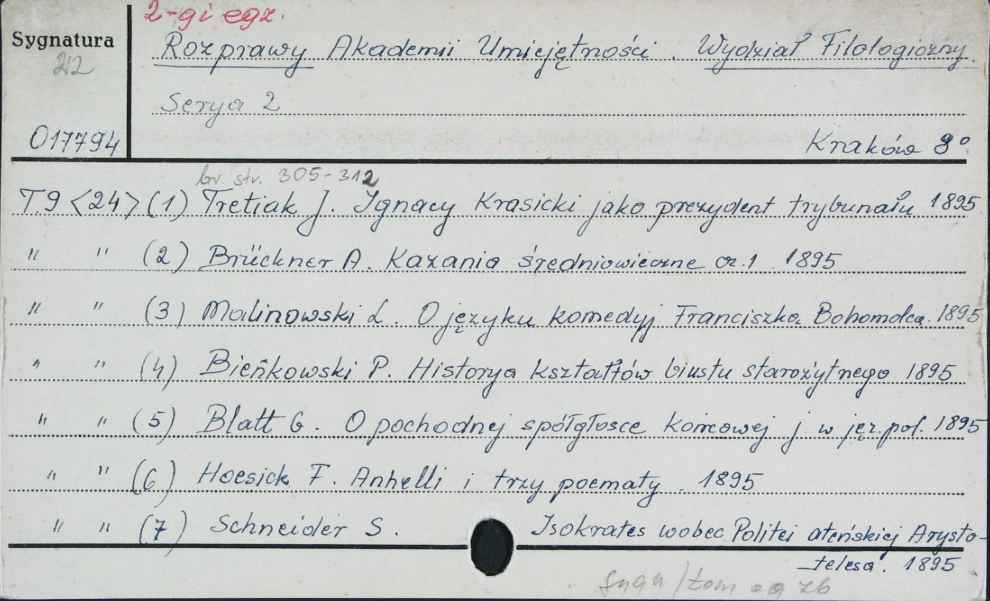 2-gi egz.
Sygnatura
212
Rozprawy Akademii Umiejętności. Wydział Filologiczny.
Serya 2
017794
Kraków 8°
br. str. 305-312
T.9 <24> (1) Tretiak J. Ignacy Krasicki jako prezydent trybunału 1895
" " (2) Brückner A. Kazania średniowieczne cz.1. 1895
" " (3) Malinowski L. O języku komedyj Franciszka Bohomolca. 1895
" " (4) Bieńkowski P. Historya kształtów biustu starożytnego 1895
" " (5) Blatt G. O pochodnej spółgłosce końcowej j w jęz. pol. 1895
" " (6) Hoesick F. Anhelli i trzy poematy. 1895
" " (7) Schneider S. Isokrates wobec Politei ateńskiej Arysto-
telesa. 1895